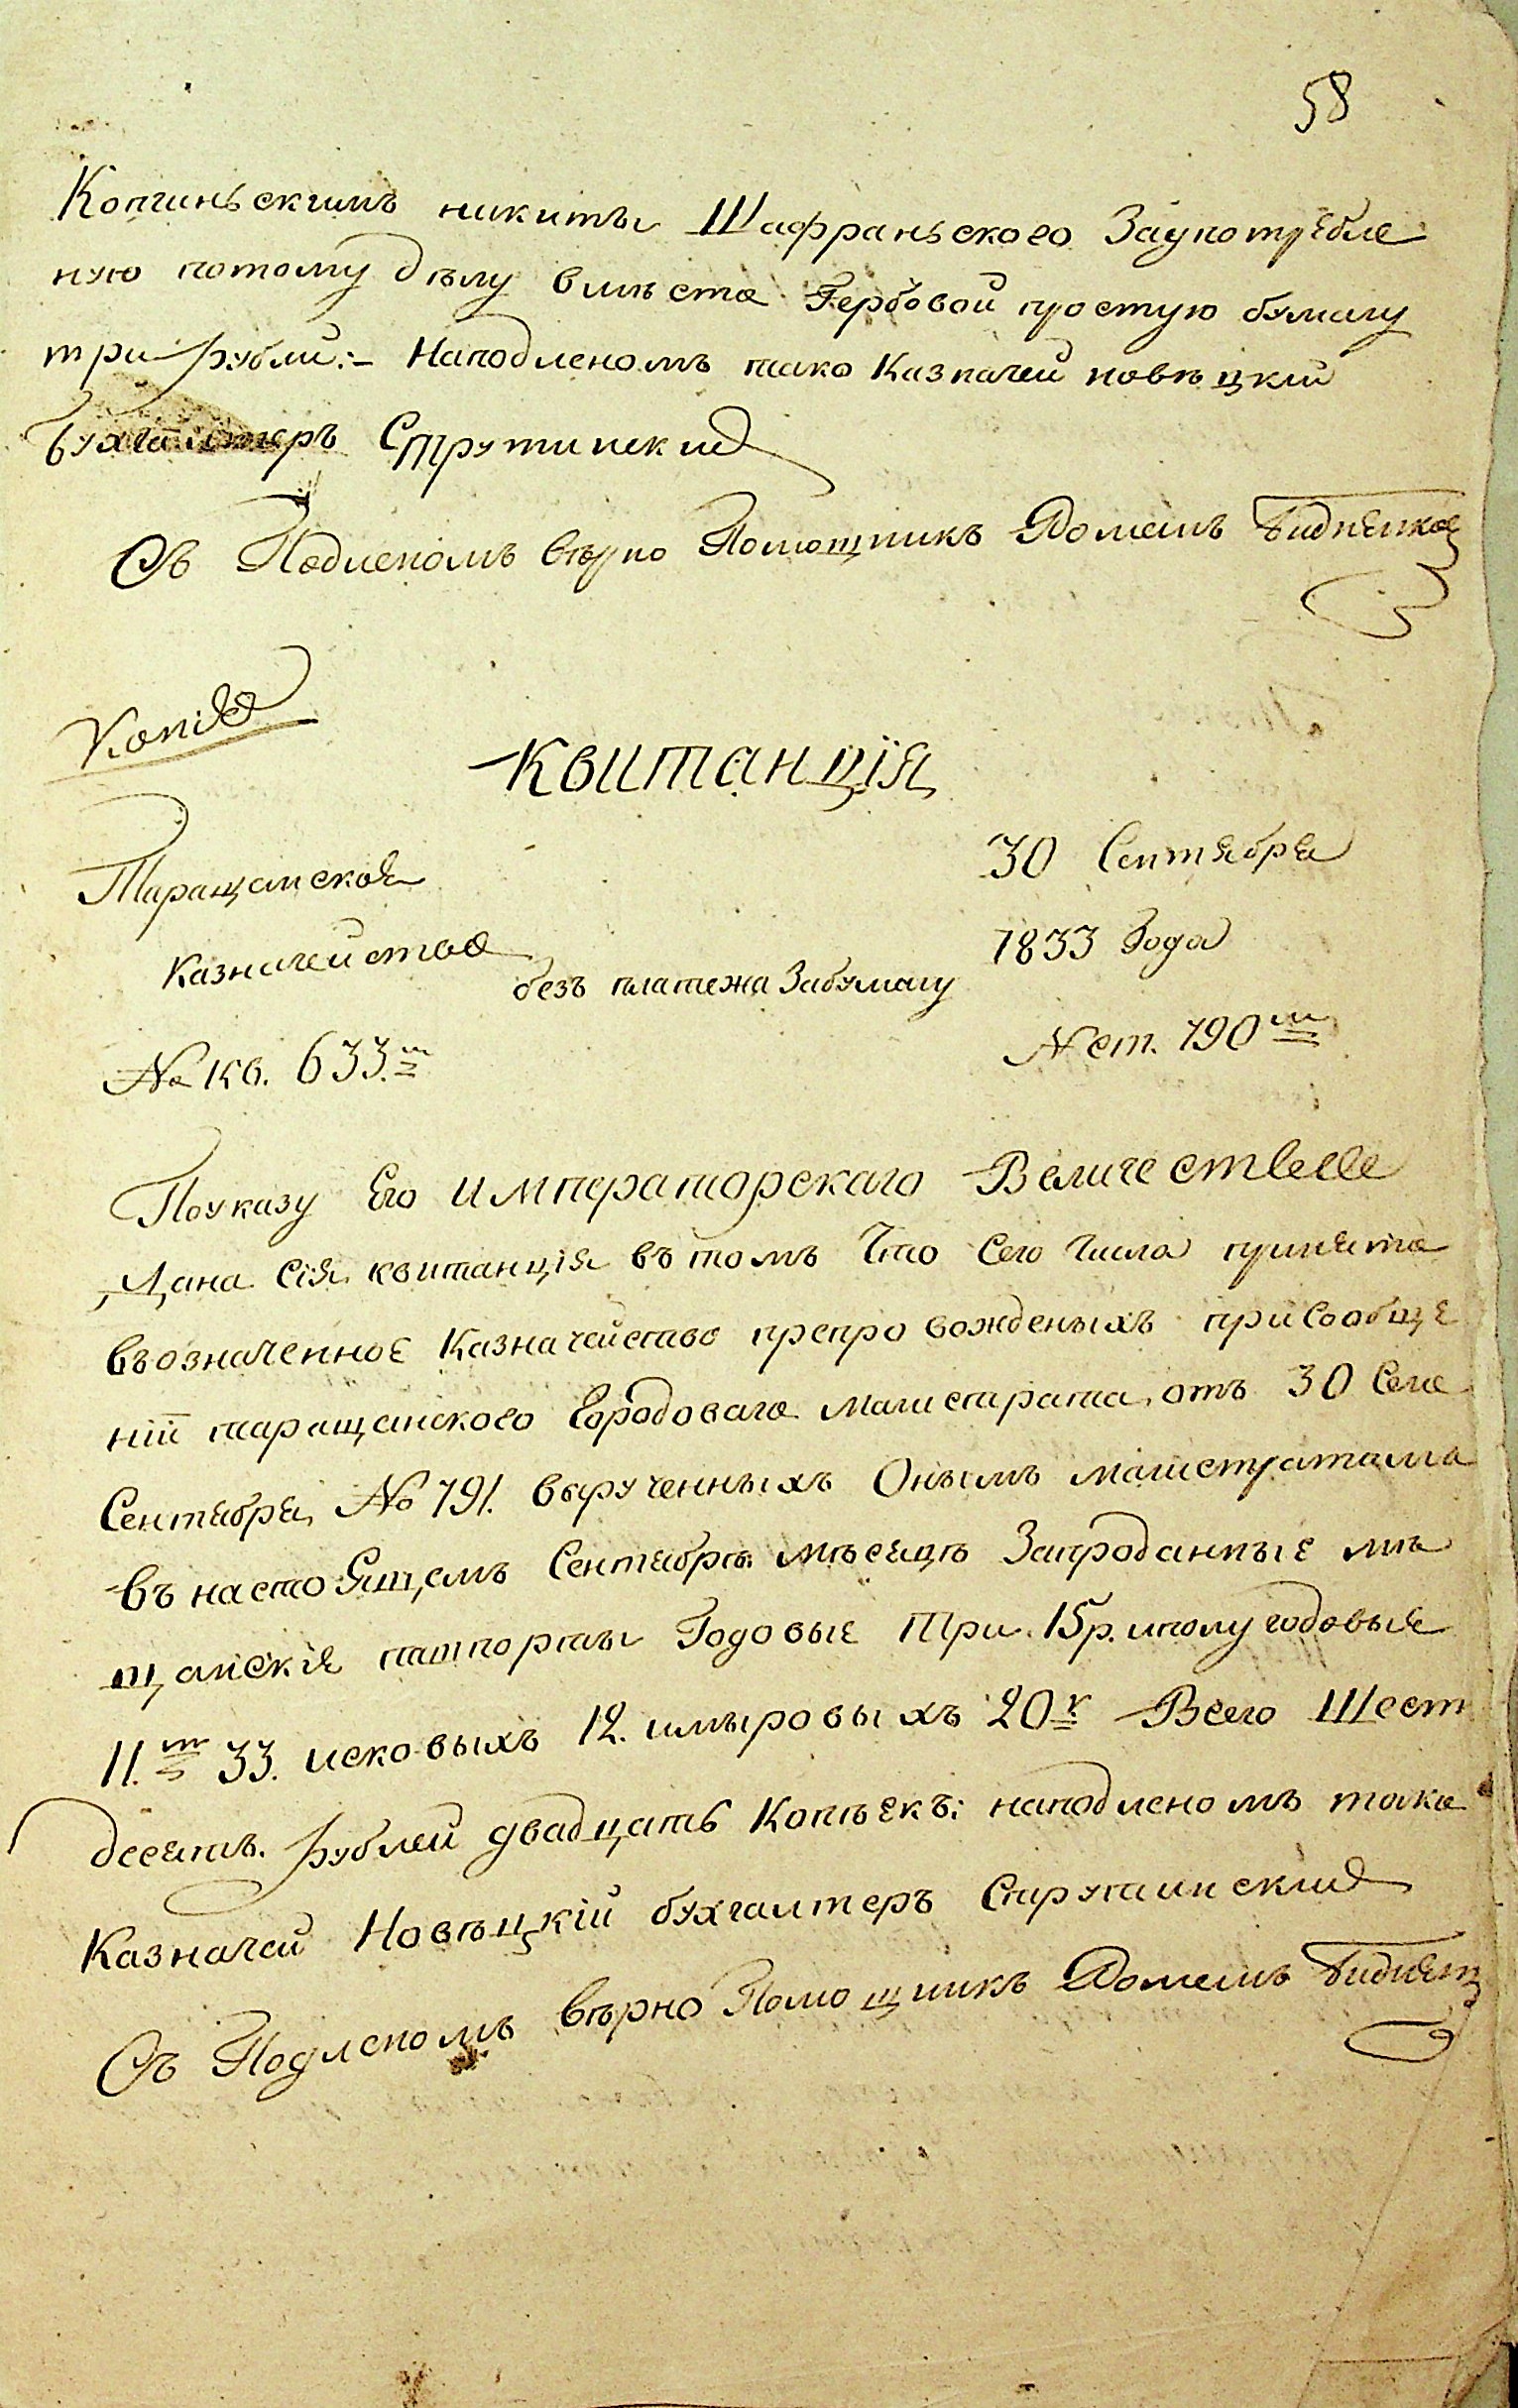 58
Копчиньскимъ никиты Шафраньского Заупотребле
ную потому делу вместо Гербовой простую бумагу
три рубли:- Наподленомъ тако Казначей новецкий
Бухгалтеръ Струтинский
Съ Подленомъ верно Помощникъ
Копія
Квитанція
Таращанское
30 Сентября
Казначейство
1833 Года
безъ платежа Забумагу
№ Кв. 633.
№ ст. 190
Поуказу Его Императорскаго Величества
Дана Сія квитанція въ томъ Что Сего Числа принято
въозначенное Казначейство препровожденыхъ присообще
ніи таращанского Городоваго магистрата отъ 30 Сего
Сентября № 791. вырученныхъ Онымъ магистратомъ
въ настоящемъ Сентябрѣ мѣсяцѣ Запроданные мѣ
щанскія пашпорты Годовые Три 15р. иполугодовые
11. 33. исковыхъ 12. имыровыхъ 20 Всего Шест
десятъ. рублей двадцать Копѣекъ: наподленомъ тако
Казначей Новѣцкій бухгалтеръ Струтинский
Съ Подленомъ вѣрно Помощникъ